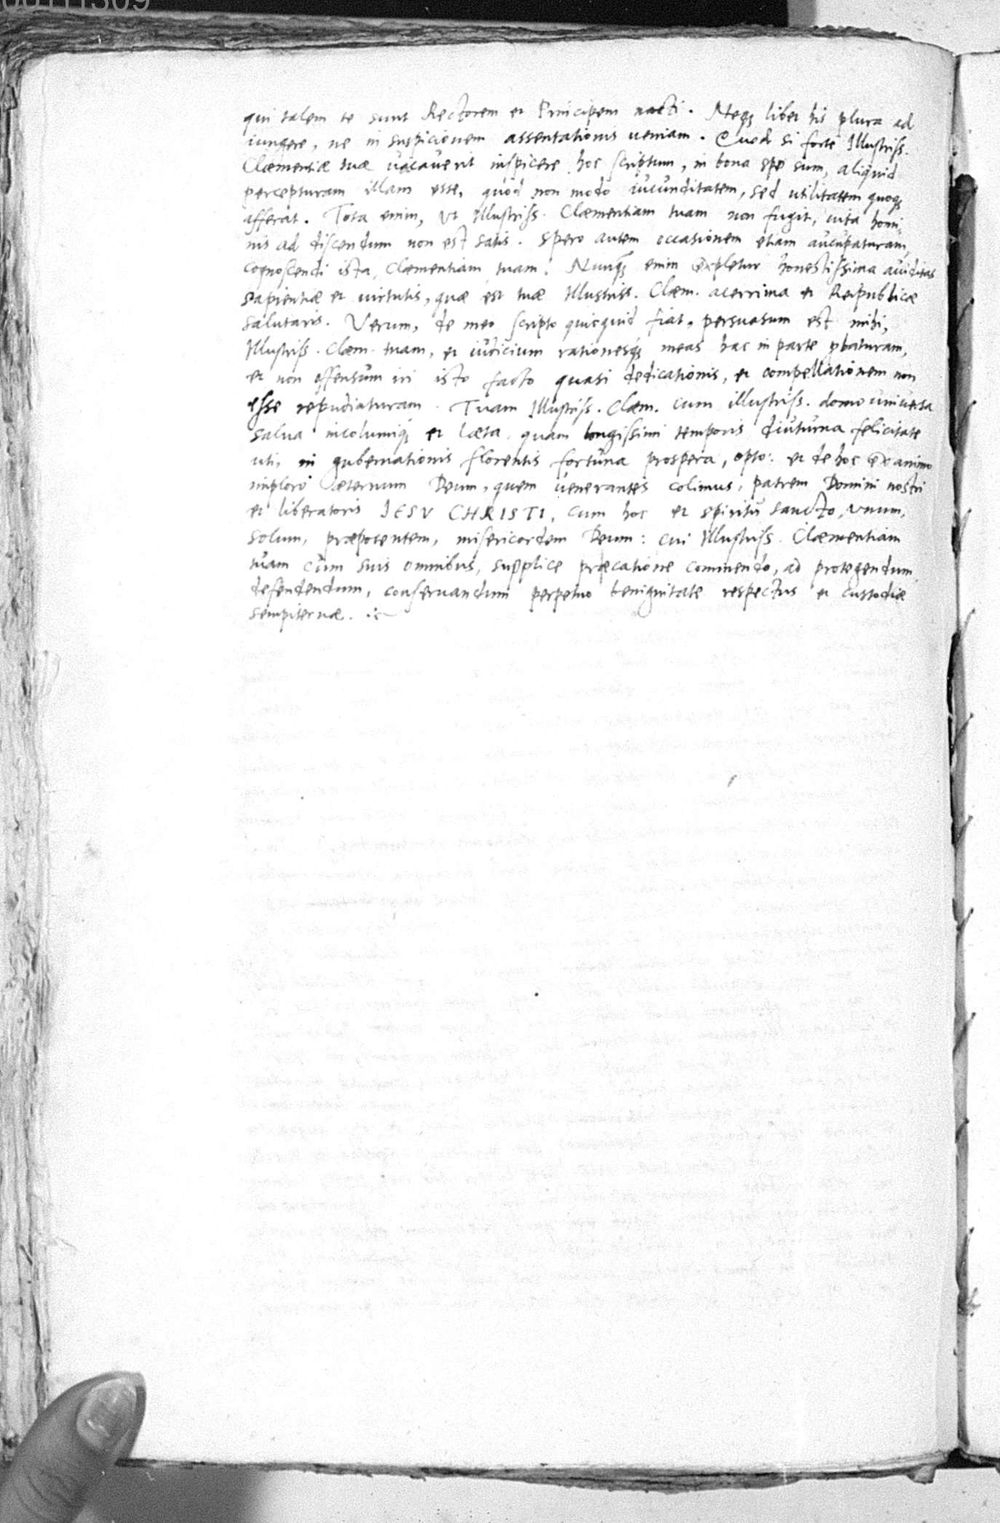 qui talem te sunt Rectorem et Principem nacti. Neqꝫ libet his plura ad
iungere, ne in suspicionem assentationis veniam. Quod si forte Illustriss.
Clæmentiæ tuæ vacaverit inspicere hoc scriptum, in bona spe sum, aliquid
percepturam illam esse, quod non modo iucunditatem, sed utilitatem quoqꝫ
afferat. Tota enim, ut Illustriss. Clæmentiam tuam non fugit, vita homi
nis ad discendum non est satis. Spero autem occasionem etiam aucupaturam
cognoscendi ista, Clementiam tuam. Nunqꝫ enim expletur honestissima aviditas
sapientiæ et virtutis, quæ est tuæ Illustriss. Clæm. acerrima et Reipublicæ
salutaris. Verum, de meo scripto quicquid fiat, persuasum est mihi,
Illustriss. Clæm. tuam, et iudicium rationesqꝫ meas hac in parte pbaturam,
et non offensum iri isto facto quasi dedicationis, et compellationem non
esse repudiaturam. Tuam Illustriss. Clæm. cum illustriss. domo universa
salva incolumiqꝫ et læta quam longissimi temporis diuturna felicitate
uti, in gubernationis florentis fortuna prospera, opto: et de hoc ex animo
imploro æternum Deum, quem venerantes colimus, patrem Domini nostri
et liberatoris IESV CHRISTI, cum hoc et spiritu sancto, unum,
solum, præpotentem, misericordem Deum: cui Illustriss. Clæmentiam
tuam cum suis omnibus, supplice præcatione commendo, ad protegendum,
defendendum, conservandum perpetuo benignitate respectus et custodiæ
sempiternæ.